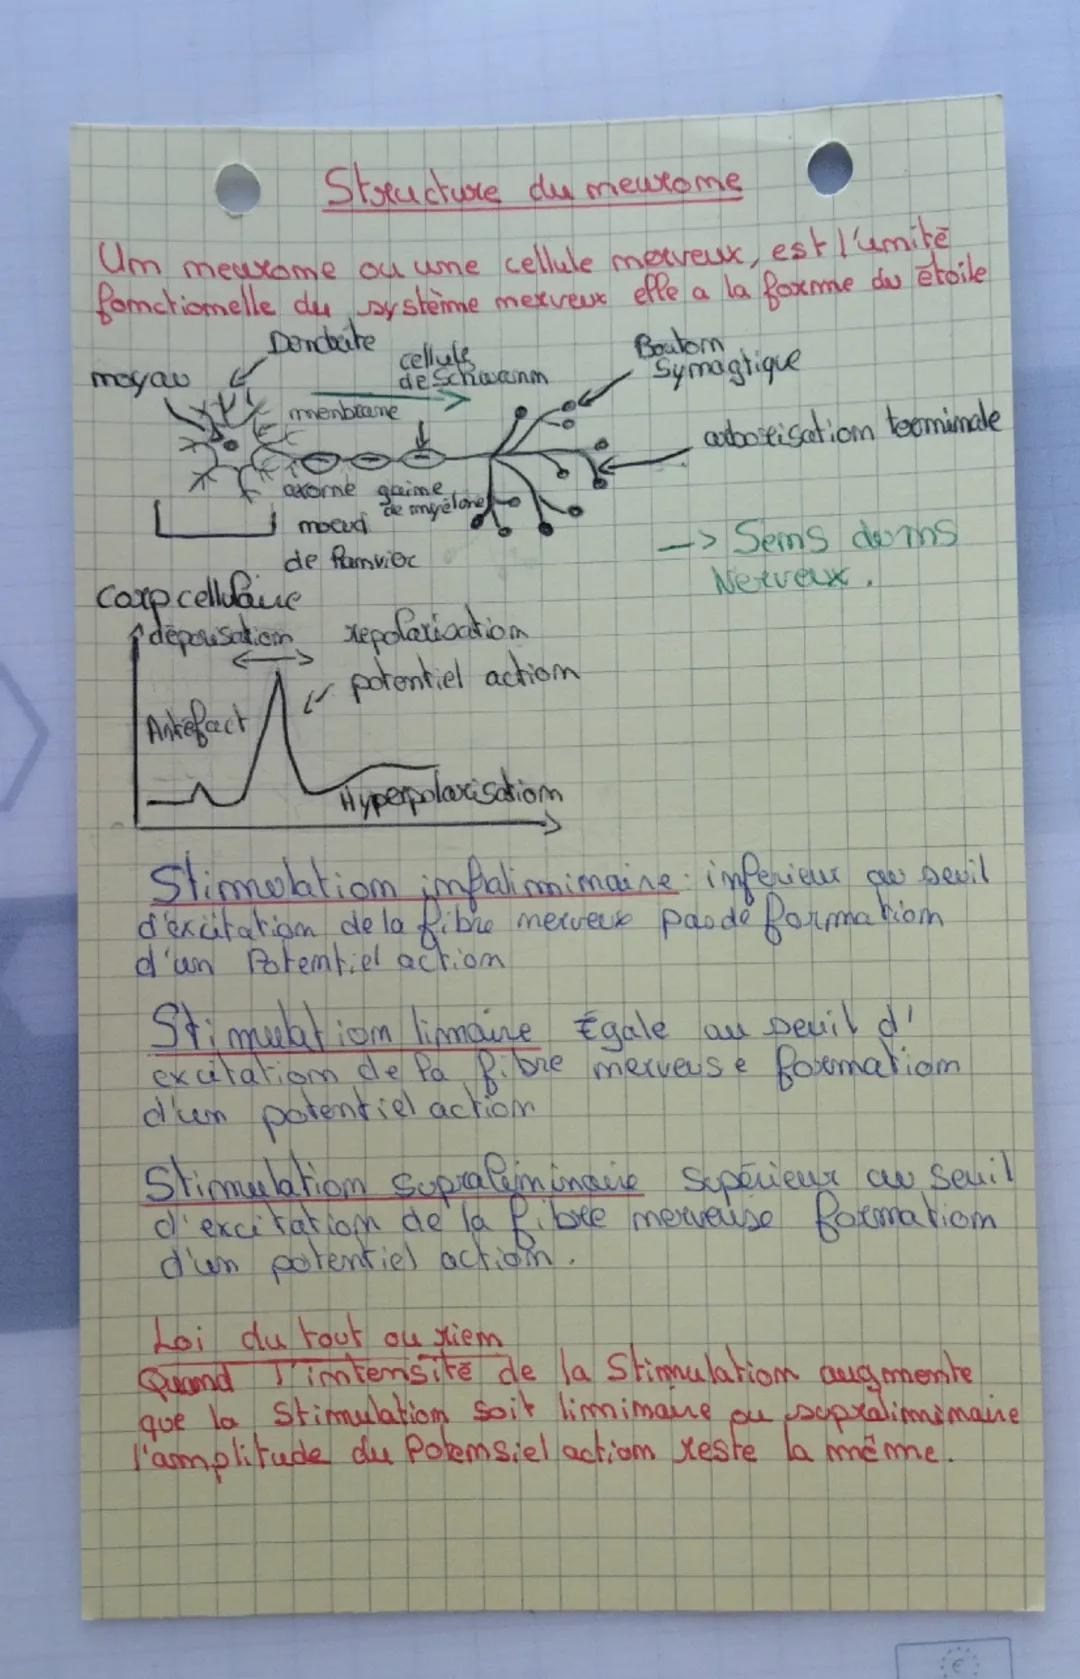 Structure du neurone
Un neurone ou une cellule nerveux, est l'unité
fonctionelle du système nerveux elle a la forme du étoile
Dendrite
noyau
cellule
de Schwann
Bouton
Synaptique
menbrane
arborisation terminale
axone
gaine
de myélone
noeud
de Ranvier
-> Sens dans
Nerveux.
Corp cellulaire
dépolisation
repolarisation
potentiel action
Artefact
Hyperpolarisation
Stimulation infraliminaire: inferieur au seuil
d'excitation de la fibre nerveux pas de formation
d'un Potentiel action
Stimulation limaire Égale au seuil d'
excitation de la fibre nerveuse formation
d'un potentiel action
Stimulation supraliminaire supérieur au seuil
d'excitation de la fibre nerveuse formation
d'un potentiel action.
Loi du tout ou rien
Quand l'intensité de la Stimulation augmente
que la Stimulation soit liminaire ou supraliminaire
l'amplitude du Potensiel action reste la même.